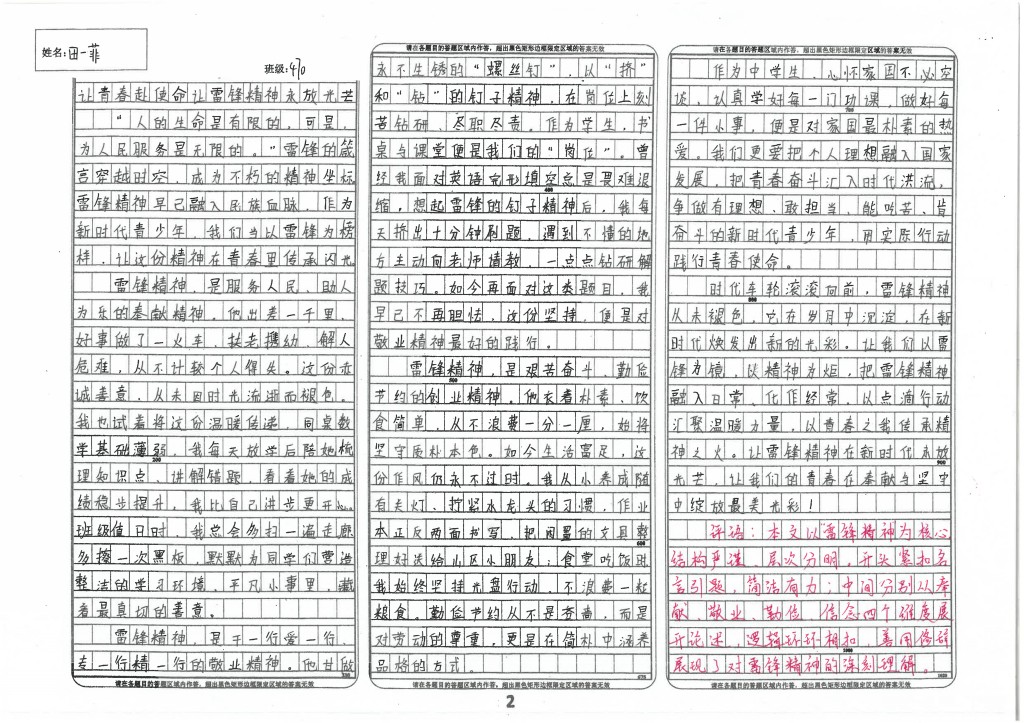 姓名:田一菲
班级:470
让青春赴使命 让雷锋精神永放光芒
“人的生命是有限的，可是，
为人民服务是无限的。”雷锋的箴
言穿越时空，成为不朽的精神坐标
雷锋精神早已融入民族血脉，作为
新时代青少年，我们当以雷锋为榜
样，让这份精神在青春里传承闪光
雷锋精神，是服务人民、助人
为乐的奉献精神。他出差一千里，
好事做了一火车，扶老携幼、解人
危难，从不计较个人得失。这份赤
诚善意，从未因时光流逝而褪色。
我也试着将这份温暖传递，同桌数
学基础薄弱，我每天放学后陪她梳
200
理知识点、讲解错题，看着她的成
绩稳步提升，我比自己进步更开
班级值日时，我总会多扫一遍走廊
多擦一次黑板，默默为同学们营造
整洁的学习环境，平凡小事里，藏
着最真切的善意。
雷锋精神，是干一行爱一行、
专一行精一行的敬业精神。他甘做
请在各题目的答题区域内作答，超出黑色矩形边框限定区域的答案无效
请在各题目的答题区域内作答，超出黑色矩形边框限定区域的答案无效
永不生锈的“螺丝钉”，以“挤”
和“钻”的钉子精神，在岗位上刻
苦钻研、尽职尽责。作为学生，书
桌与课堂便是我们的“岗位”。曾
经我面对英语完形填空总是畏难退
400
缩，想起雷锋的钉子精神后，我每
天挤出十分钟刷题，遇到不懂的地
方主动向老师请教，一点点钻研解
题技巧。如今再面对这类题目，我
早已不再胆怯，这份坚持，便是对
敬业精神最好的践行。
雷锋精神，是艰苦奋斗、勤俭
500
节约的创业精神。他衣着朴素、饮
食简单，从不浪费一分一厘，始终
坚守质朴本色。如今生活富足，这
份作风仍永不过时。我从小养成随
手关灯、拧紧水龙头的习惯，作业
本正反两面书写，把闲置的文具整
600
理好送给山区小朋友；食堂吃饭时
我始终坚持光盘行动，不浪费一粒
粮食。勤俭节约从不是吝啬，而是
对劳动的尊重，更是在简朴中涵养
品格的方式。
请在各题目的答题区域内作答，超出黑色矩形边框限定区域的答案无效
请在各题目的答题区域内作答，超出黑色矩形边框限定区域的答案无效
作为中学生，心怀家国不必空
谈，认真学好每一门功课，做好每
700
一件小事，便是对家国最朴素的热
爱。我们更要把个人理想融入国家
发展，把青春奋斗汇入时代洪流，
争做有理想、敢担当、能吃苦、肯
奋斗的新时代青少年，用实际行动
践行青春使命。
时代车轮滚滚向前，雷锋精神
800
从未褪色，它在岁月中沉淀，在新
时代焕发出新的光彩。让我们以雷
锋为镜，以精神为炬，把雷锋精神
融入日常、化作经常，以点滴行动
汇聚温暖力量，以青春之我传承精
神之火。让雷锋精神在新时代永放
900
光芒，让我们的青春在奉献与坚守
中绽放最美光彩！
评语：本文以“雷锋精神”为核心
结构严谨，层次分明。开头紧扣名
言引题，简洁有力；中间分别从奉
献、敬业、勤俭、信念四个维度展
开论述，逻辑环环相扣，善用修辞
1000
展现了对雷锋精神的深刻理解。
请在各题目的答题区域内作答，超出黑色矩形边框限定区域的答案无效
2